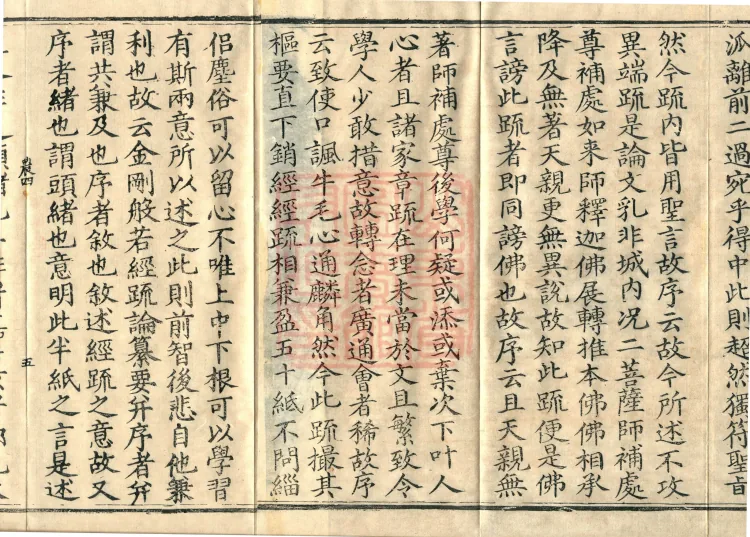 派離前二過宛乎得中此則超然獨符聖旨
然今疏內皆用聖言故序云故今所述不攻
異端疏是論文乳非城內况二菩薩師補處
尊補處如来師釋迦佛展轉推本佛佛相承
降及無著天親更無異說故知此疏便是佛
言謗此疏者即同謗佛也故序云且天親無
著師補處尊後學何疑或添或棄次下叶人
心者且諸家章疏在理未當於文且繁致令
學人少敢措意故轉念者廣通會者稀故序
云致使口諷牛毛心通麟角然今此疏撮其
樞要直下銷經經疏相兼盈五十紙不問緇
侣塵俗可以留心不唯上中下根可以學習
有斯兩意所以述之此則前智後悲自他兼
利也故云金剛般若經疏論纂要并序者并
謂共兼及也序者敘也敘述經疏之意故又
序者緒也謂頭緒也意明此半紙之言是述
農四
五